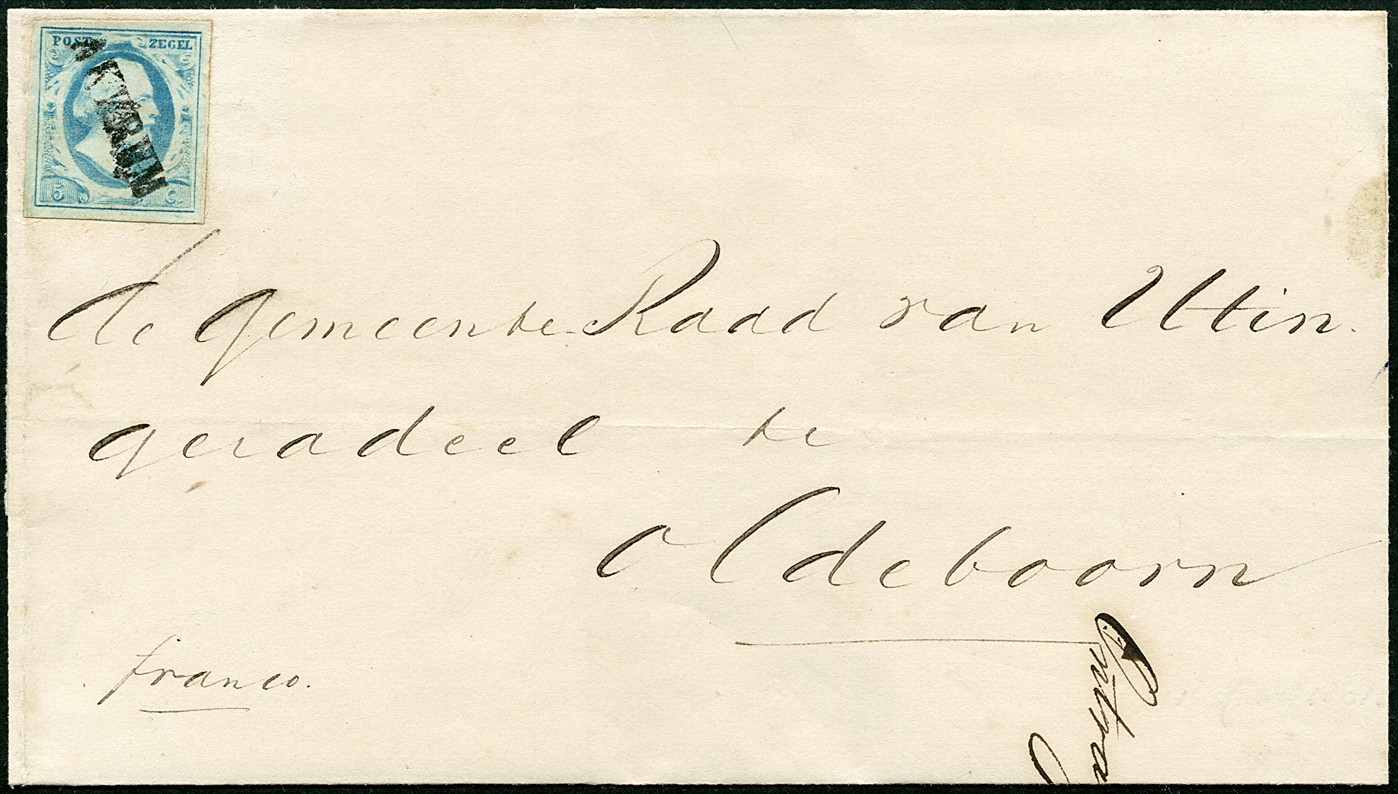 POST ZEGEL
5 C
de Gemeente Raad van Utin.
geradeel te
Oldeboorn
franco.